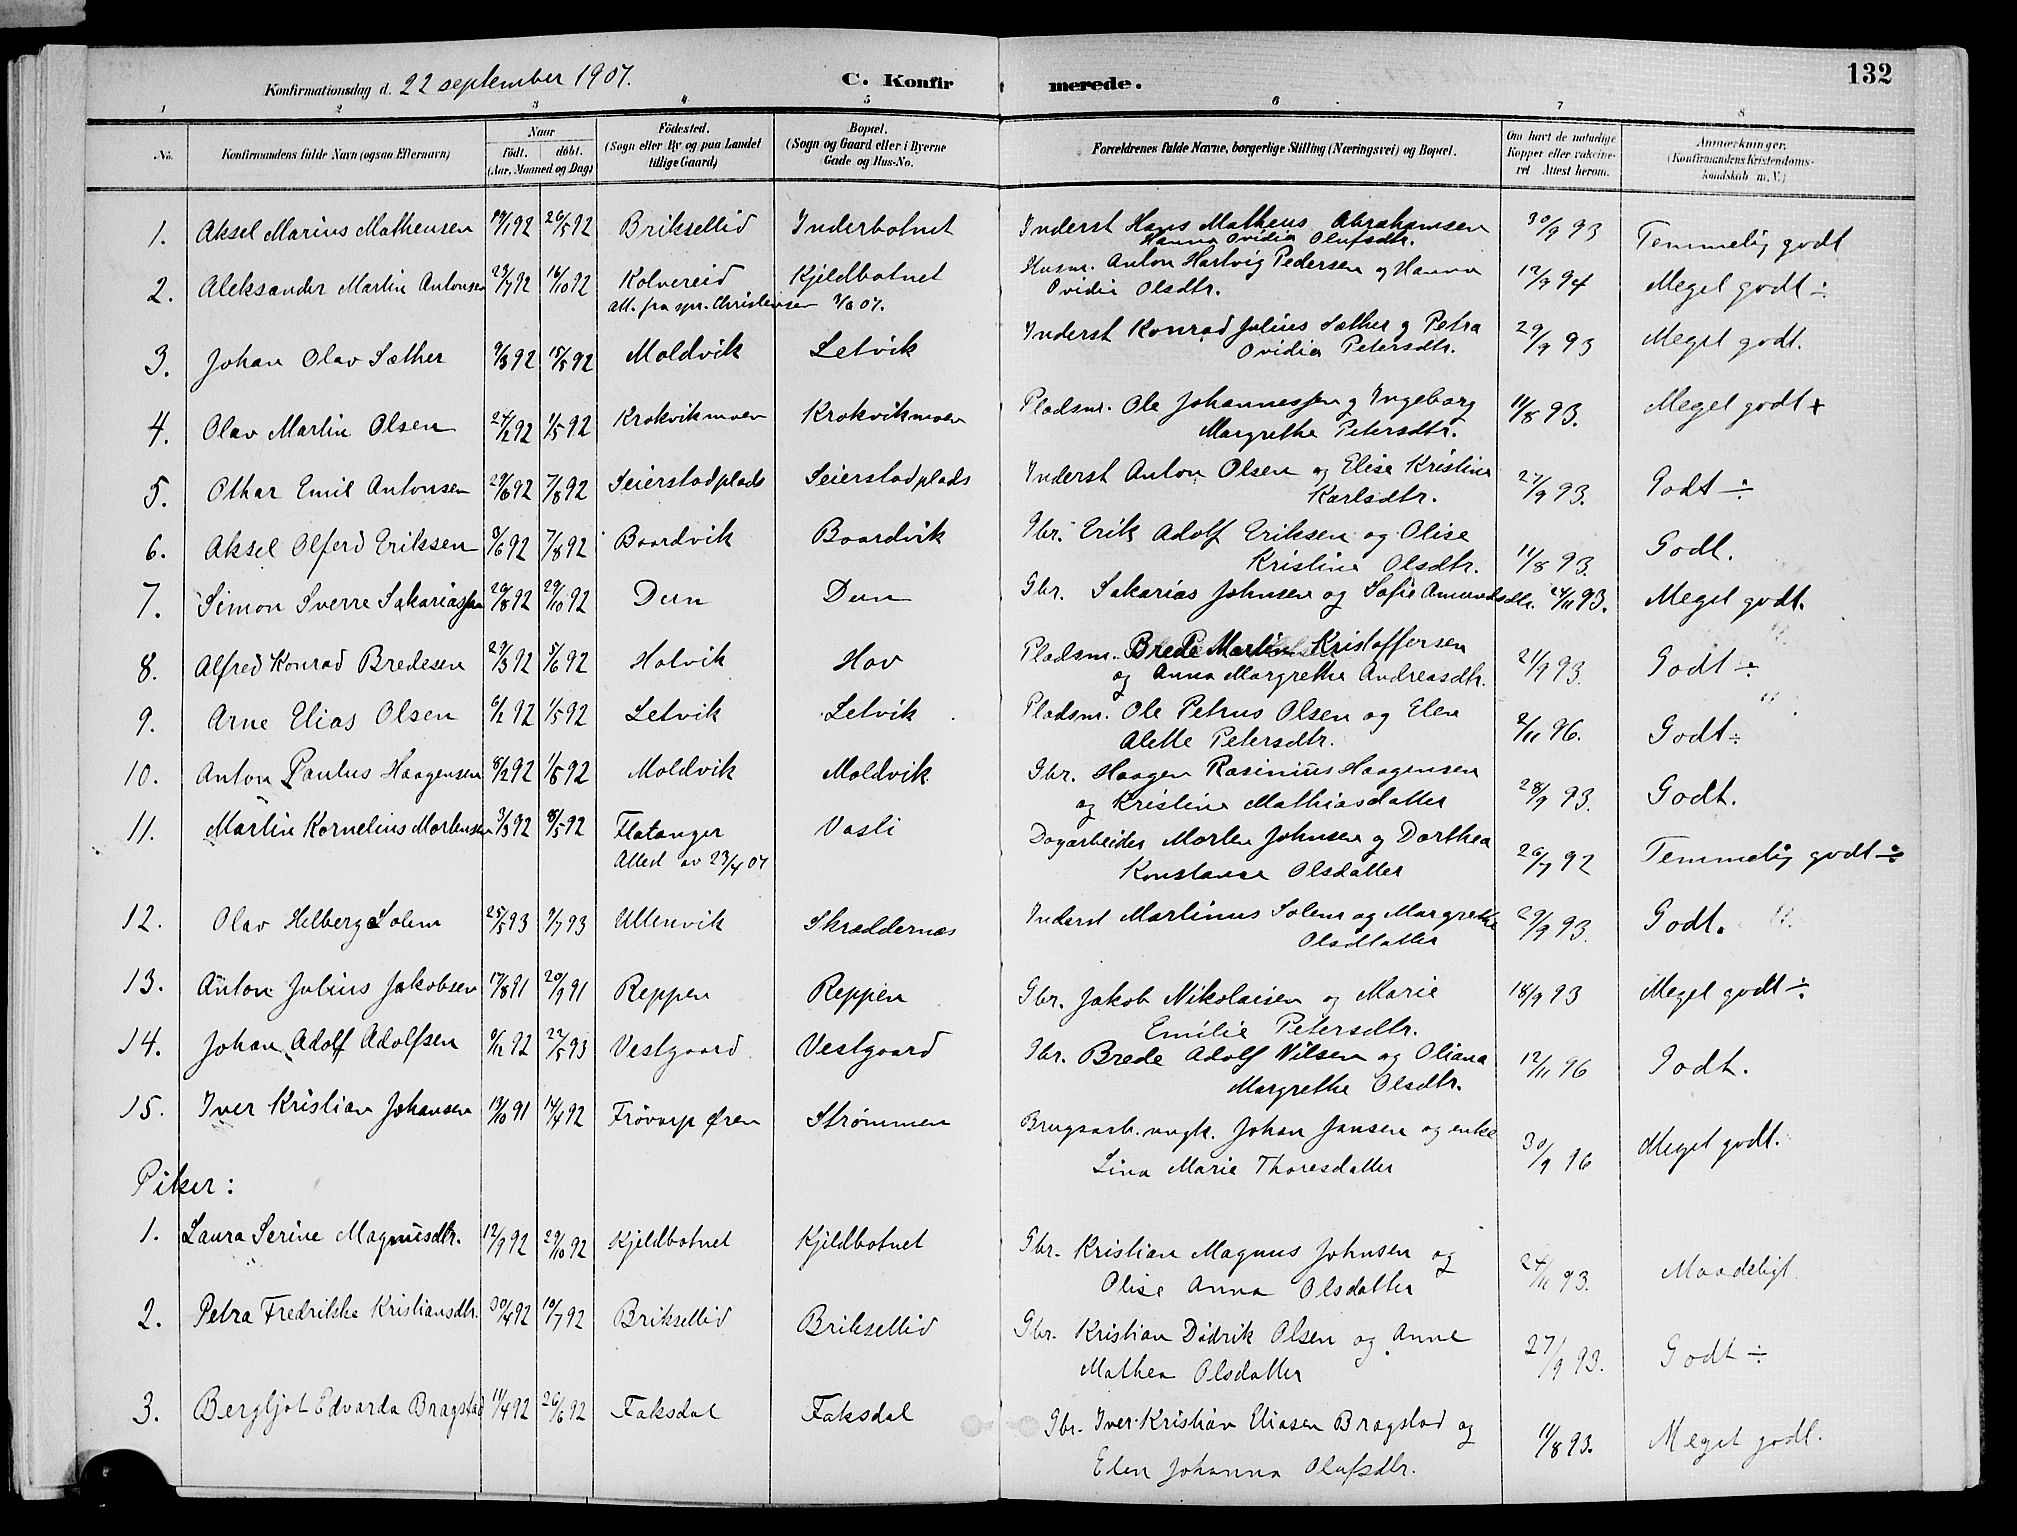 132
Konfirmationsdag d. 22 september 1907.
C. Konfirmerede.
1 2 3 4 5 6 7 8
No. Konfirmandens fulde Navn (ogsaa Efternavn) Naar født. døbt. (Aar, Maaned og Dag) Fødested. (Sogn eller By og paa Landet tillige Gaard) Bopæl. (Sogn og Gaard eller i Byerne Gade og Hus-No. Forældrenes fulde Navne, borgerlige Stilling (Næringsvei) og Bopæl. Om havt de naturlige Kopper eller vakcineret Attest herom. Anmærkninger. (Konfirmandens Kristendomskundskab m. V.)
1. Aksel Marius Matheusen 19/1 92 26/5 92 Briksellid Inderbotnet Inderst Hans Matheus Abrahamsen 30/9 93 Temmelig godt
Hanna Ovidia Olufsdtr.
2. Aleksander Martin Antonsen 29/7 92 16/10 92 Kolvereid Kjeldbotnet Husm. Anton Hartvig Pedersen og Hanna 12/9 94 Meget godt ÷
att. fra spr. Christensen 07. Ovidia Olsdtr.
3. Johan Olav Sæther 9/3 92 15/5 92 Moldvik Letvik Inderst Konrad Julius Sæther og Petra 29/9 93 Meget godt.
Ovidia Petersdtr.
4. Olav Martin Olsen 24/2 92 1/5 92 Krokvikmoen Krokvikmoen Pladsm. Ole Johannessen og Ingeborg 11/8 93. Meget godt +
Margrethe Petersdtr.
5. Othar Emil Antonsen 29/6 92 7/8 92 Seierstadplads Seierstadplads Inderst Anton Olsen og Elise Kristine 27/9 93. Godt ÷
Karlsdtr.
6. Aksel Olferd Eriksen 8/6 92 7/8 92 Baardvik Baardvik Gbr. Erik Adolf Eriksen og Olise 11/8 93. Godt.
Kristine Olsdtr.
7. Simon Sverre Sakariassen 20/8 92 29/10 92 Dun Dun Gbr. Sakarias Johnsen og Sofie Amundsdtr. 24/11 93. Meget godt.
8. Alfred Konrad Bredesen 29/3 92 5/6 92 Holvik Hov Pladsm. Brede Martin Kristoffersen 21/9 93. Godt ÷
og Anna Margrethe Andreasdtr.
9. Arne Elias Olsen 6/2 92 1/5 92 Letvik Letvik Pladsm. Ole Petrus Olsen og Elen 2/11 96. Godt ÷
Alette Petersdtr.
10. Anton Paulus Haagensen 8/2 92 1/8 92 Moldvik Moldvik Gbr. Haagen Rasinius Haagensen 28/9 93. Godt.
og Kristine Mathiasdatter
11. Martin Kornelius Mortensen 3/3 92 8/5 92 Flatanger Vasli Dagarbeider Morten Johnsen og Dorthea 26/7 92 Temmelig godt ÷
Attest av 23/4 07 Konstanse Olsdatter
12. Olav Helberg Solem 25/5 93 9/7 93 Utvik Skræddernæs Inderst Martinus Solem og Margrethe 29/9 93. Godt.
Olsdatter
13. Anton Julius Jakobsen 17/8 91 20/9 91 Reppen Reppen Gbr. Jakob Nikolaisen og Marie 18/9 93 Meget godt ÷
Emilie Petersdtr.
14. Johan Adolf Adolfsen 9/12 92 22/5 93 Vestgaard Vestgaard Gbr. Brede Adolf Nilsen og Oliana 12/11 96 Godt.
Margrethe Olsdtr.
15. Iver Kristian Johansen 19/10 91 14/4 92 Frøvarp Øren Strømmen Brugsarb. ungk. Johan Jansen og enke 30/9 96 Meget godt.
Lina Marie Thoresdatter
Piker:
1. Laura Serine Magnusdtr. 12/9 92 29/10 92 Kjeldbotnet Kjeldbotnet Gbr. Kristian Magnus Johnsen og 24/11 93. Maadeligt
Olise Anna Olsdatter
2. Petra Fredrikke Kristiansdtr. 30/4 92 10/7 92 Briksellid Briksellid Gbr. Kristian Didrik Olsen og Anne 27/9 93. Godt ÷
Mathea Olsdatter
3. Bergljot Edvarda Bragstad 11/4 92 26/6 92 Faksdal Faksdal Gbr. Iver Kristian Eliasen Bragstad og 11/8 93. Meget godt.
Elen Johanna Olufsdtr.